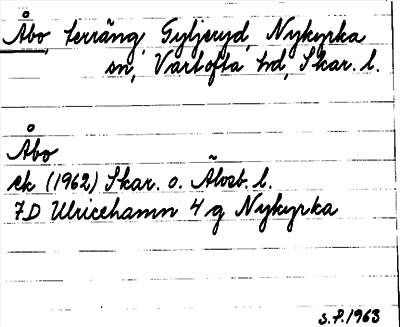 Åbo, terräng, Gyljeryd, Nykyrka
sn, Vartofta hd, Skar. l.
Åbo
ek (1962) Skar. o. Älvsb. l.
7D Ulricehamn 4 g Nykyrka
S.P. 1963